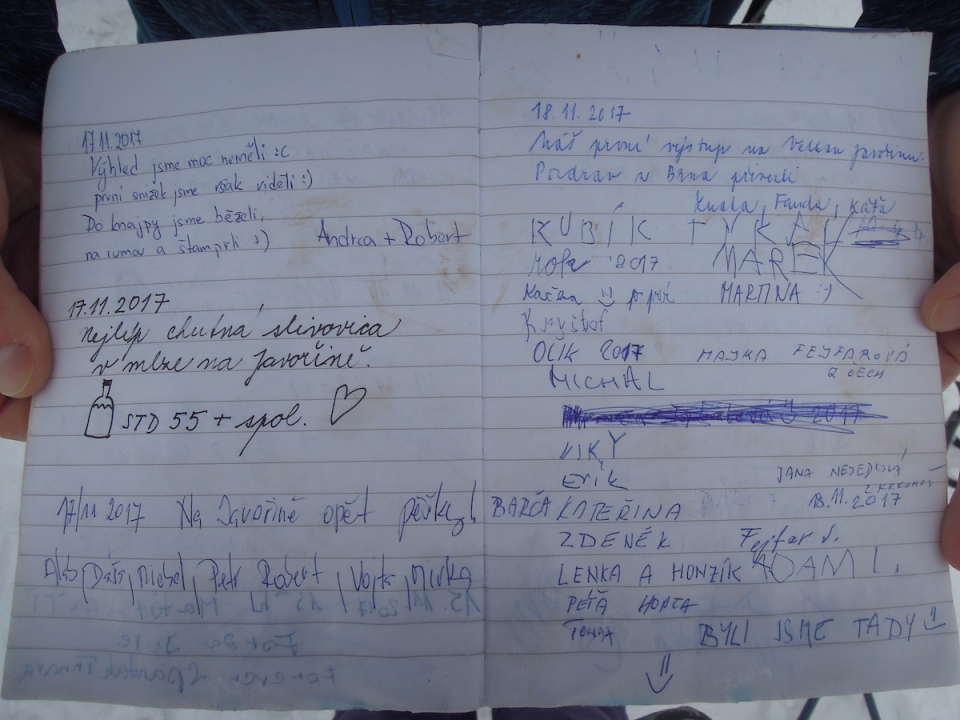 17.11.2017
Výhled jsme moc neměli :c
první snížek jsme však viděli :)
Do knajpy jsme běželi,
na ruma a štamprli :)
Andrea + Robert
17.11.2017
Nejlep chutná slivovica
v mlze na Javořině.
STD 55 + spol.
17/11 2017 Na Javořině opět pěšky!
Dáša, Michal, Petr Robert, Vojta, Mirka
18.11.2017
Náš první výstup na Velkou Javořinu.
Pozdrav z Brna přivezli
Fanda, Káťa
KUBÍK
2017
MAREK
MARTINA :)
Kryštof
OLIK 2017
MAJKA FEJFAROVÁ
Z ČECH
MICHAL
2017
VIKY
Erik
JANA
18.11.2017
BARČA KATEŘINA
ZDENĚK
Fejfar J.
LENKA A HONZÍK
ADAM L.
PÉŤA HONZA
BYLI JSME TADY :)